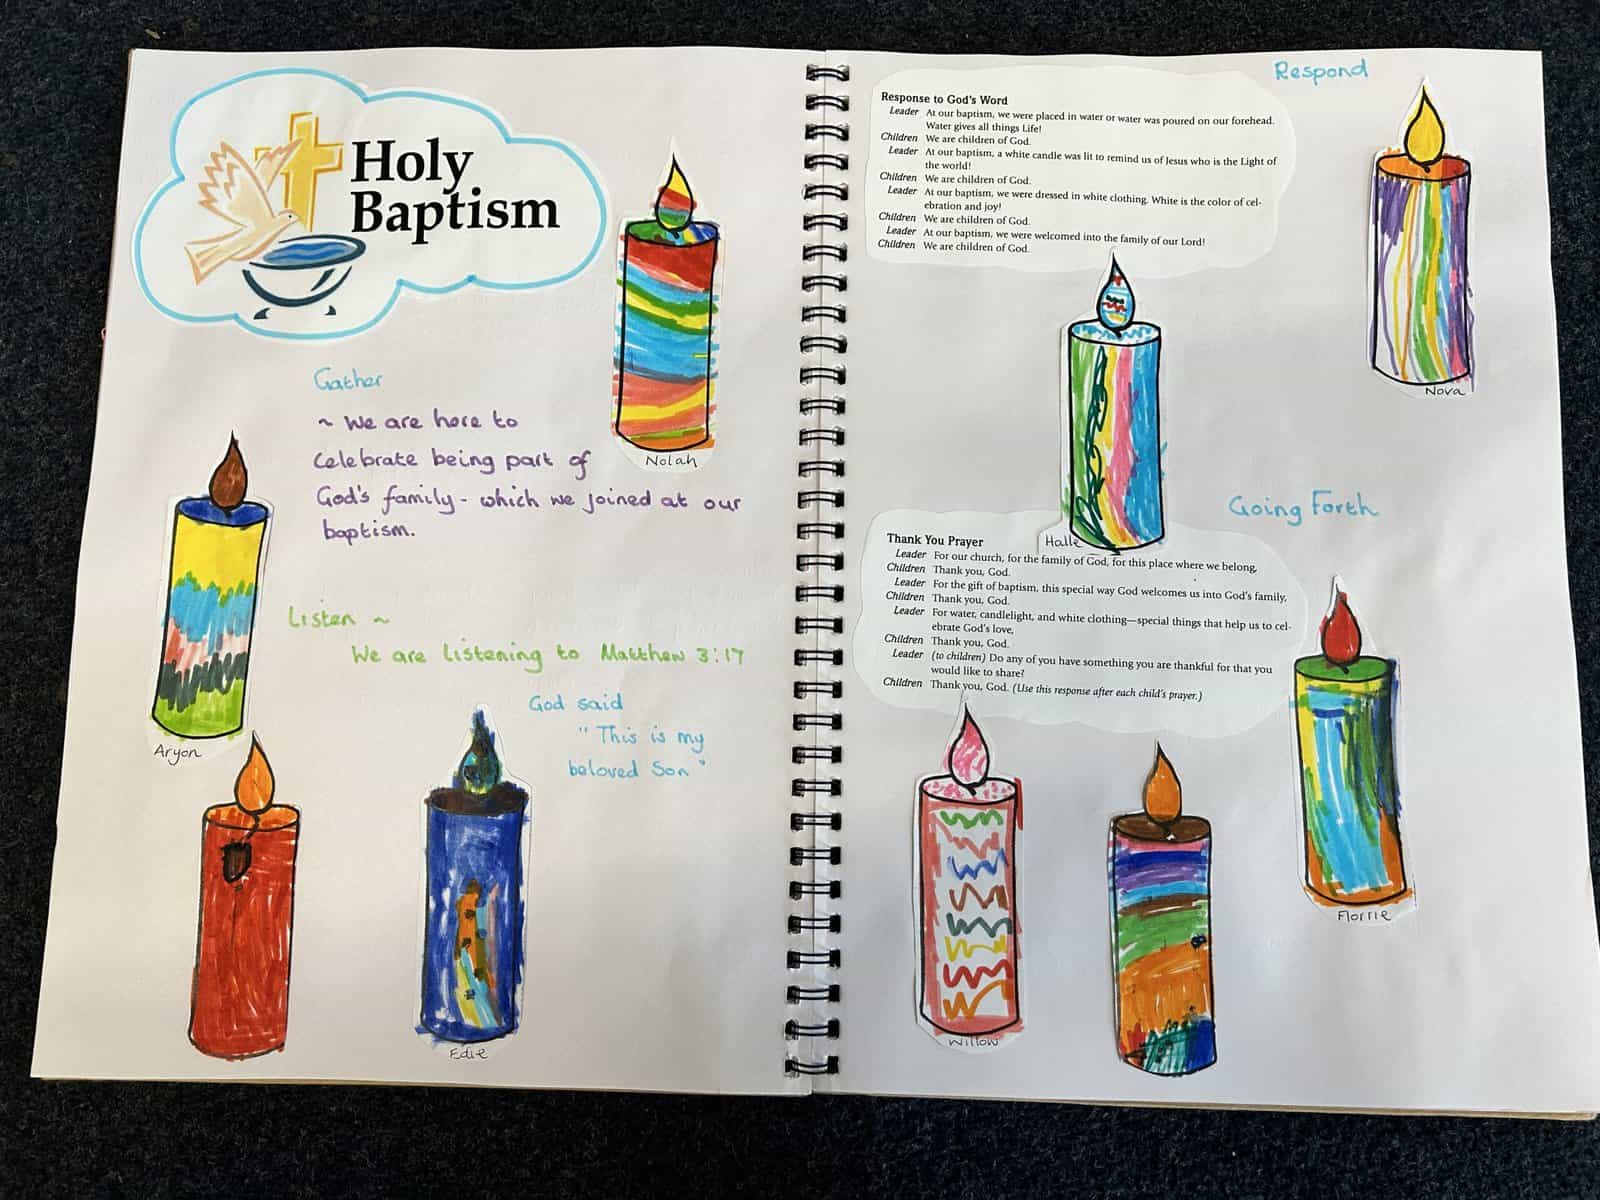 Holy
Baptism
Nolah
Gather
~ We are here to
celebrate being part of
God's family - which we joined at our
baptism.
Listen ~
We are listening to Matthew 3:17
God said
"This is my
beloved Son"
Aryon
Edie
Respond
Response to God's Word
Leader At our baptism, we were placed in water or water was poured on our forehead.
Water gives all things Life!
Children We are children of God.
Leader At our baptism, a white candle was lit to remind us of Jesus who is the Light of
the world!
Children We are children of God.
Leader At our baptism, we were dressed in white clothing. White is the color of cel-
ebration and joy!
Children We are children of God.
Leader At our baptism, we were welcomed into the family of our Lord!
Children We are children of God.
Nova
Halle
Going Forth
Thank You Prayer
Leader For our church, for the family of God, for this place where we belong,
Children Thank you, God.
Leader For the gift of baptism, this special way God welcomes us into God's family,
Children Thank you, God.
Leader For water, candlelight, and white clothing—special things that help us to cel-
ebrate God's love,
Children Thank you, God.
Leader (to children) Do any of you have something you are thankful for that you
would like to share?
Children Thank you, God. (Use this response after each child's prayer.)
Florrie
Willow